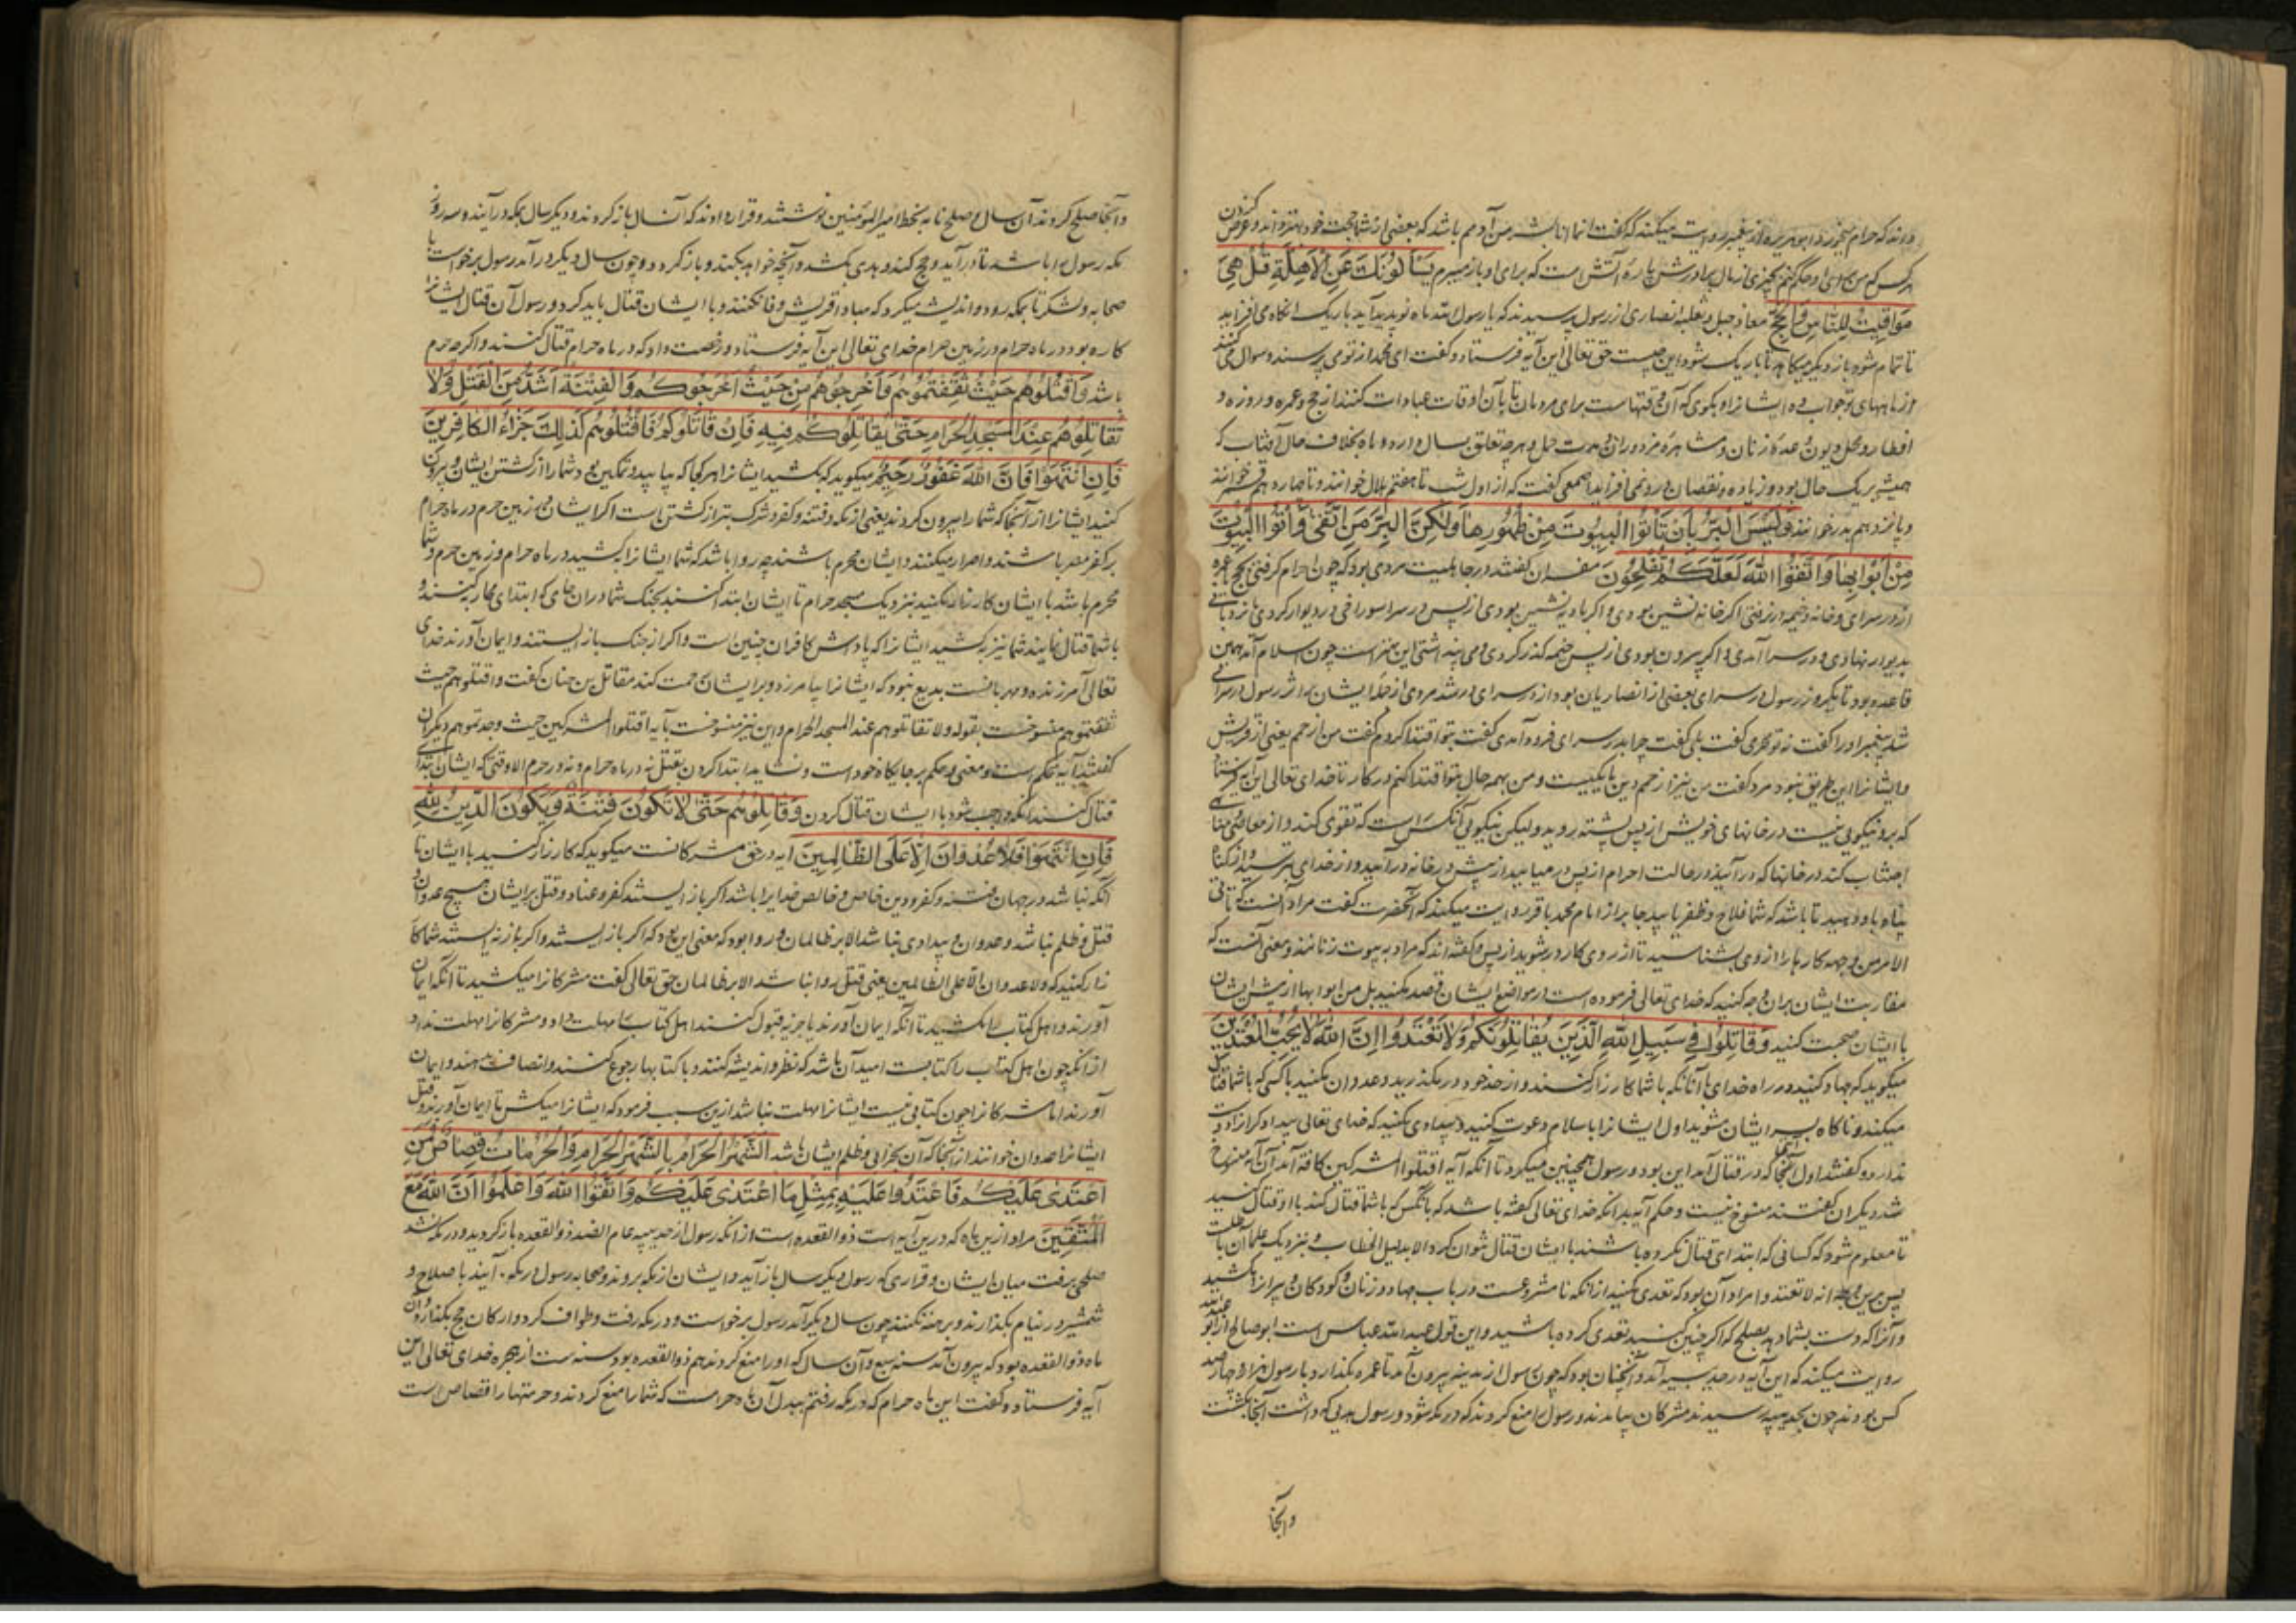 دانند که حرام میخورد و ابوهریره از پیغمبر روایت میکند که گفت انما انا بشر من آدمیم باشد که بعضی از شما بحجت خود بهتر داند و غرض کردن
هر کس که من برای او حکم کنم بچیزی از مال برادرش پاره آتش است که برای او باز میبرم يَسْأَلُونَكَ عَنِ الْأَهِلَّةِ قُلْ هِيَ
مَوَاقِيتُ لِلنَّاسِ وَالْحَجِّ معاذ جبل و ثعلبه انصاری از رسول پرسیدند که یا رسول الله ماه نو پدید آید باریک آنگاه می افزاید
تا تمام شود باز دیگر میکاهد تا باریک شود این چیست حق تعالی این آیه فرستاد و گفت ای محمد از تو می پرسند و سوال می کنند
از ماههای نو جواب ده ایشانرا و بگوی که آن وقتهاست برای مردمان تا بآن اوقات عبادات کنند از حج و عمره و روزه و
افطار و محل دیون و عده زنان و مشاهره مزدوران و مدت حمل و هرچه تعلق بسال دارد و ماه بخلاف حال آفتاب که
همیشه بر یک حال بود و زیاده و نقصان درو نمی افزاید اصمعی گفت که از اول شب تا هفتم هلال خوانند و تا چهاردهم قمر خوانند
و پانزدهم بدر خوانند وَلَيْسَ الْبِرُّ بِأَنْ تَأْتُوا الْبُيُوتَ مِنْ ظُهُورِهَا وَلَكِنَّ الْبِرَّ مَنِ اتَّقَى وَأْتُوا الْبُيُوتَ
مِنْ أَبْوَابِهَا وَاتَّقُوا اللَّهَ لَعَلَّكُمْ تُفْلِحُونَ مفسران گفتند در جاهلیت مردی بود که چون احرام گرفتی بحج یا عمره
از در سرای و خانه و خیمه در نرفتی اگر خانه نشین بودی و اگر بادیه نشین بودی از پس در سرا سوراخی در دیوار کردی یا نردبانی
بدیوار نهادی و در سرا آمدی و اگر بیرون بودی از پس خیمه گذر کردی و می پنداشتی این بهتر است چون اسلام آمد همین
قاعده بود تا یکروز رسول در سرای بعضی از انصاریان بود از در سرای در شد مردی از جمله ایشان بر اثر رسول در سرای
شد پیغمبر او را گفت نه تو محرمی گفت بلی گفت چرا بدر سرای فرو آمدی گفت بتو اقتدا کردم گفت من از حمم یعنی از قریش
و ایشانرا این طریق نبود مرد گفت من نیز از حمم دین ما یکیست و من بهمه حال بتو اقتدا کنم در کار تا خدای تعالی این آیه فرستاد
که بر و نیکویی نیست در خانهای خویش از پس پشته روید و لیکن نیکویی آنکس است که تقوی کند و از معاصی و مناهی
اجتناب کند در خانها که درآیند در حالت احرام از پس در میایید از پیش در خانه درآیید و از خدای بترسید و از گناه
پناه باو دهید تا باشد که شما فلاح و ظفر یابید جابر از امام محمد باقر روایت میکند که آنحضرت گفت مراد آنست که تأتی
الامر من وجهه کارها را از وی بشناسید تا از روی کار در شوید از پس و گفته اند که مراد به بیوت زنانند و معنی آنست که
مقاربت ایشان بران وجه کنید که خدای تعالی فرموده است در مواضع ایشان قصد مکنید بل من ابوابها از پیش ایشان
با ایشان صحبت کنید وَقَاتِلُوا فِي سَبِيلِ اللَّهِ الَّذِينَ يُقَاتِلُونَكُمْ وَلَا تَعْتَدُوا إِنَّ اللَّهَ لَا يُحِبُّ الْمُعْتَدِينَ
میگوید که جهاد کنید در راه خدای با آنانکه با شما کارزار کنند و از حد خود در مگذرید و عدوان مکنید با کسی که با شما قتال
میکند و ناگاه بسر ایشان مشوید اول ایشانرا باسلام دعوت کنید و بیدادی مکنید که خدای تعالی بیدادگرانرا دوست
ندارد و گفتند اول آیتها که در قتال آمد این بود و رسول همچنین میکرد تا آنکه آیه اقتلوا المشرکین کافة آمد آن آیه منسوخ
شد دیگران گفتند منسوخ نیست و حکم آیه بدانکه خدای تعالی گفته باشد که با آنکس که با شما قتال کند با او قتال کنید
تا معلوم شود که کسانی که ابتدای قتال نکرده باشند با ایشان قتال نتوان کرد الا بدلیل الخطاب و نزدیک علما آن باطلست
پس برین وجه انه لا تعتدوا مراد آن بود که تعدی مکنید از آنکه نامشروعست در باب جهاد و زنان و کودکان و پیرانرا مکشید
و آنرا که دست بشما دهد بصلح که اگر چنین کنید تعدی کرده باشید و این قول عبدالله عباس است ابوصالح از عبدالله
روایت میکند که این آیه در حدیبیه آمد و آنچنان بود که چون رسول از مدینه بیرون آمد تا عمره بگذارد با رسول هزار و چهارصد
کس بودند چون بحدیبیه رسیدند مشرکان بیامدند و رسول را منع کردند که در مکه شود و رسول هدیی که داشت آنجا بکشت
وآنجا
وآنجا صلح کردند آن سال و صلح نامه بخط امیرالمؤمنین نوشتند و قرار دادند که آن سال باز گردند و دیگر سال بمکه درآیند و سه روز
مکه رسول را باشد تا درآید و حج کند و هدی بکشد و آنچه خواهد بکند و باز گردد و چون سال دیگر درآمد رسول برخواست با
صحابه و لشکر تا بمکه رود و اندیشه میکرد که مبادا قریش وفا نکنند و با ایشان قتال باید کرد و رسول آن قتال ایشانرا
کاره بود در ماه حرام و زمین حرام خدای تعالی این آیه فرستاد و رخصت داد که در ماه حرام قتال کنند و اگرچه حرم
باشد وَاقْتُلُوهُمْ حَيْثُ ثَقِفْتُمُوهُمْ وَأَخْرِجُوهُمْ مِنْ حَيْثُ أَخْرَجُوكُمْ وَالْفِتْنَةُ أَشَدُّ مِنَ الْقَتْلِ وَلَا
تُقَاتِلُوهُمْ عِنْدَ الْمَسْجِدِ الْحَرَامِ حَتَّى يُقَاتِلُوكُمْ فِيهِ فَإِنْ قَاتَلُوكُمْ فَاقْتُلُوهُمْ كَذَلِكَ جَزَاءُ الْكَافِرِينَ
فَإِنِ انْتَهَوْا فَإِنَّ اللَّهَ غَفُورٌ رَحِيمٌ میگوید که بکشید ایشانرا هر کجا که بیابید و تمکین بود شما را از کشتن ایشان و بیرون
کنید ایشانرا از آنجا که شما را بیرون کردند یعنی از مکه و فتنه و کفر و شرک بتر از کشتن است اگر ایشان در زمین حرم در ماه حرام
بر کفر مصر باشند و اصرار میکنند و ایشان محرم باشند چه روا باشد که شما ایشانرا بکشید در ماه حرام و زمین حرم و شما
محرم باشد با ایشان کارزار مکنید نزدیک مسجد حرام تا ایشان ابتدا کنند بجنگ شما در ان جای که ابتدای محاربه کنند و
با شما قتال نمایند شما نیز بکشید ایشانرا که پاداش کافران چنین است و اگر از جنگ باز ایستند و ایمان آورند خدای
تعالی آمرزنده و مهربانست بدیع نبود که ایشانرا بیامرزد و بر ایشان رحمت کند مقاتل بن حنان گفت واقتلوهم حیث
ثقفتموهم منسوخست بقوله ولا تقاتلوهم عند المسجد الحرام و این نیز منسوخست بآیه اقتلوا المشرکین حیث وجدتموهم دیگران
گفتند آیه محکم است و معنی و حکم بر جایگاه خود است و نشاید ابتدا کردن بقتل نه در ماه حرام و نه در حرم الا وقتی که ایشان ابتدای
قتال کنند آنگه واجب شود با ایشان قتال کردن وَقَاتِلُوهُمْ حَتَّى لَا تَكُونَ فِتْنَةٌ وَيَكُونَ الدِّينُ لِلَّهِ
فَإِنِ انْتَهَوْا فَلَا عُدْوَانَ إِلَّا عَلَى الظَّالِمِينَ آیه در حق مشرکانست میگوید که کارزار کنید با ایشان تا
آنگه نباشد در جهان فتنه و کفر و دین خاص و خالص خدایرا باشد اگر باز ایستند کفر و عناد و قتل بر ایشان هیچ عدوان و
قتل و ظلم نباشد و عدوان و بیدادی نباشد الا بر ظالمان و روا بود که معنی این بود که اگر باز ایستند و اگر باز نه ایستند شما کار
زار کنید که ولا عدوان الا علی الظالمین یعنی قتل روا نباشد الا بر ظالمان حق تعالی گفت مشرکانرا میکشید تا آنگه ایمان
آورند و اهل کتاب را بکشید تا آنگه ایمان آورند یا جزیه قبول کنند اهل کتاب را مهلت داد و مشرکانرا مهلت نداد
از آنکه چون اهل کتاب را کتابست امید آن باشد که نظر و اندیشه کنند و با کتابها رجوع کنند و انصاف دهند و ایمان
آورند اما مشرکانرا چون کتابی نیست ایشانرا مهلت نباشد ازین سبب فرمود که ایشانرا میکش تا ایمان آورند و قتل
ایشانرا عدوان خوانند از آنجا که آن بجزای و ظلم ایشان باشد الشَّهْرُ الْحَرَامُ بِالشَّهْرِ الْحَرَامِ وَالْحُرُمَاتُ قِصَاصٌ فَمَنِ
اعْتَدَى عَلَيْكُمْ فَاعْتَدُوا عَلَيْهِ بِمِثْلِ مَا اعْتَدَى عَلَيْكُمْ وَاتَّقُوا اللَّهَ وَاعْلَمُوا أَنَّ اللَّهَ مَعَ
الْمُتَّقِينَ مراد ازین ماه که درین آیه است ذوالقعده است از آنکه رسول از حدیبیه عام الصد ذوالقعده باز گردید و در مکه نشد
صلحی برفت میان ایشان و قراری که رسول دیگر سال باز آید و ایشان از مکه بروند و صحابه رسول در مکه آیند با سلاح و
شمشیر در نیام بگذارند و برهنه نکنند چون سال دیگر آمد رسول برخواست و در مکه رفت و طواف کرد و ارکان حج بگذارد و آن
ماه ذوالقعده بود که بیرون آمد سنه سبع و آن سال که او را منع کردند هم ذوالقعده بود سنه ست از هجره خدای تعالی این
آیه فرستاد و گفت این ماه حرام که در مکه رفتم ببدل آن ماه حرامست که شما را منع کردند و حرمتها را قصاص است